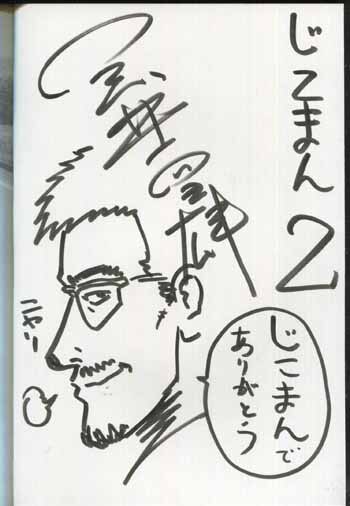 じこまん
2
じこまんで
ありがとう
ニヤリ